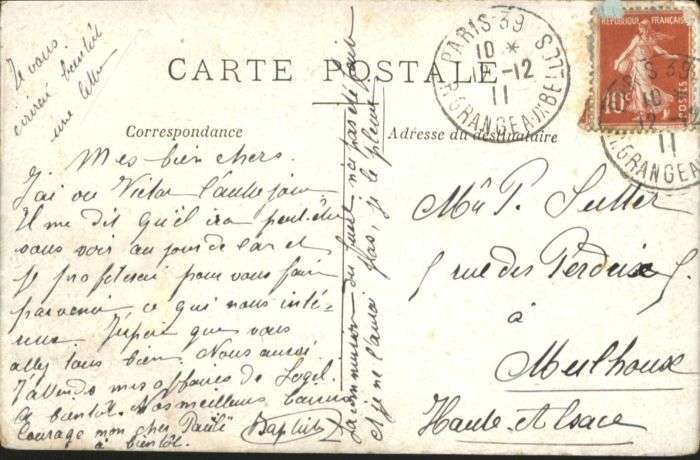 Je vous
écrirai bientôt
une lettre
CARTE POSTALE
Correspondance
Adresse du destinataire
Mes bien chers.
J'ai vu Victor l'autre jour
Il me dit qu'il ira peut-être
vous voir au jour de l'an et
je profiterai pour vous faire
parvenir ce qui nous inté-
resse J'espère que vous
allez tous bien. Nous aussi.
J'attends mes affaires de
A bientôt. Nos meilleurs baisers
Courage mon cher Paul
à bientôt.
Baptiste
La commission du n'a pas été faite
et je ne l'aurai pas, je le pleure
PARIS 39
10 *
12-12
11
R. GRANGE AUX BELLES
REPUBLIQUE FRANÇAISE
10c
POSTES
PARIS 39
10
12-12
11
R. GRANGE A
P. Sutter
5 rue des Perdrix 5
à
Mulhouse
Haute-Alsace